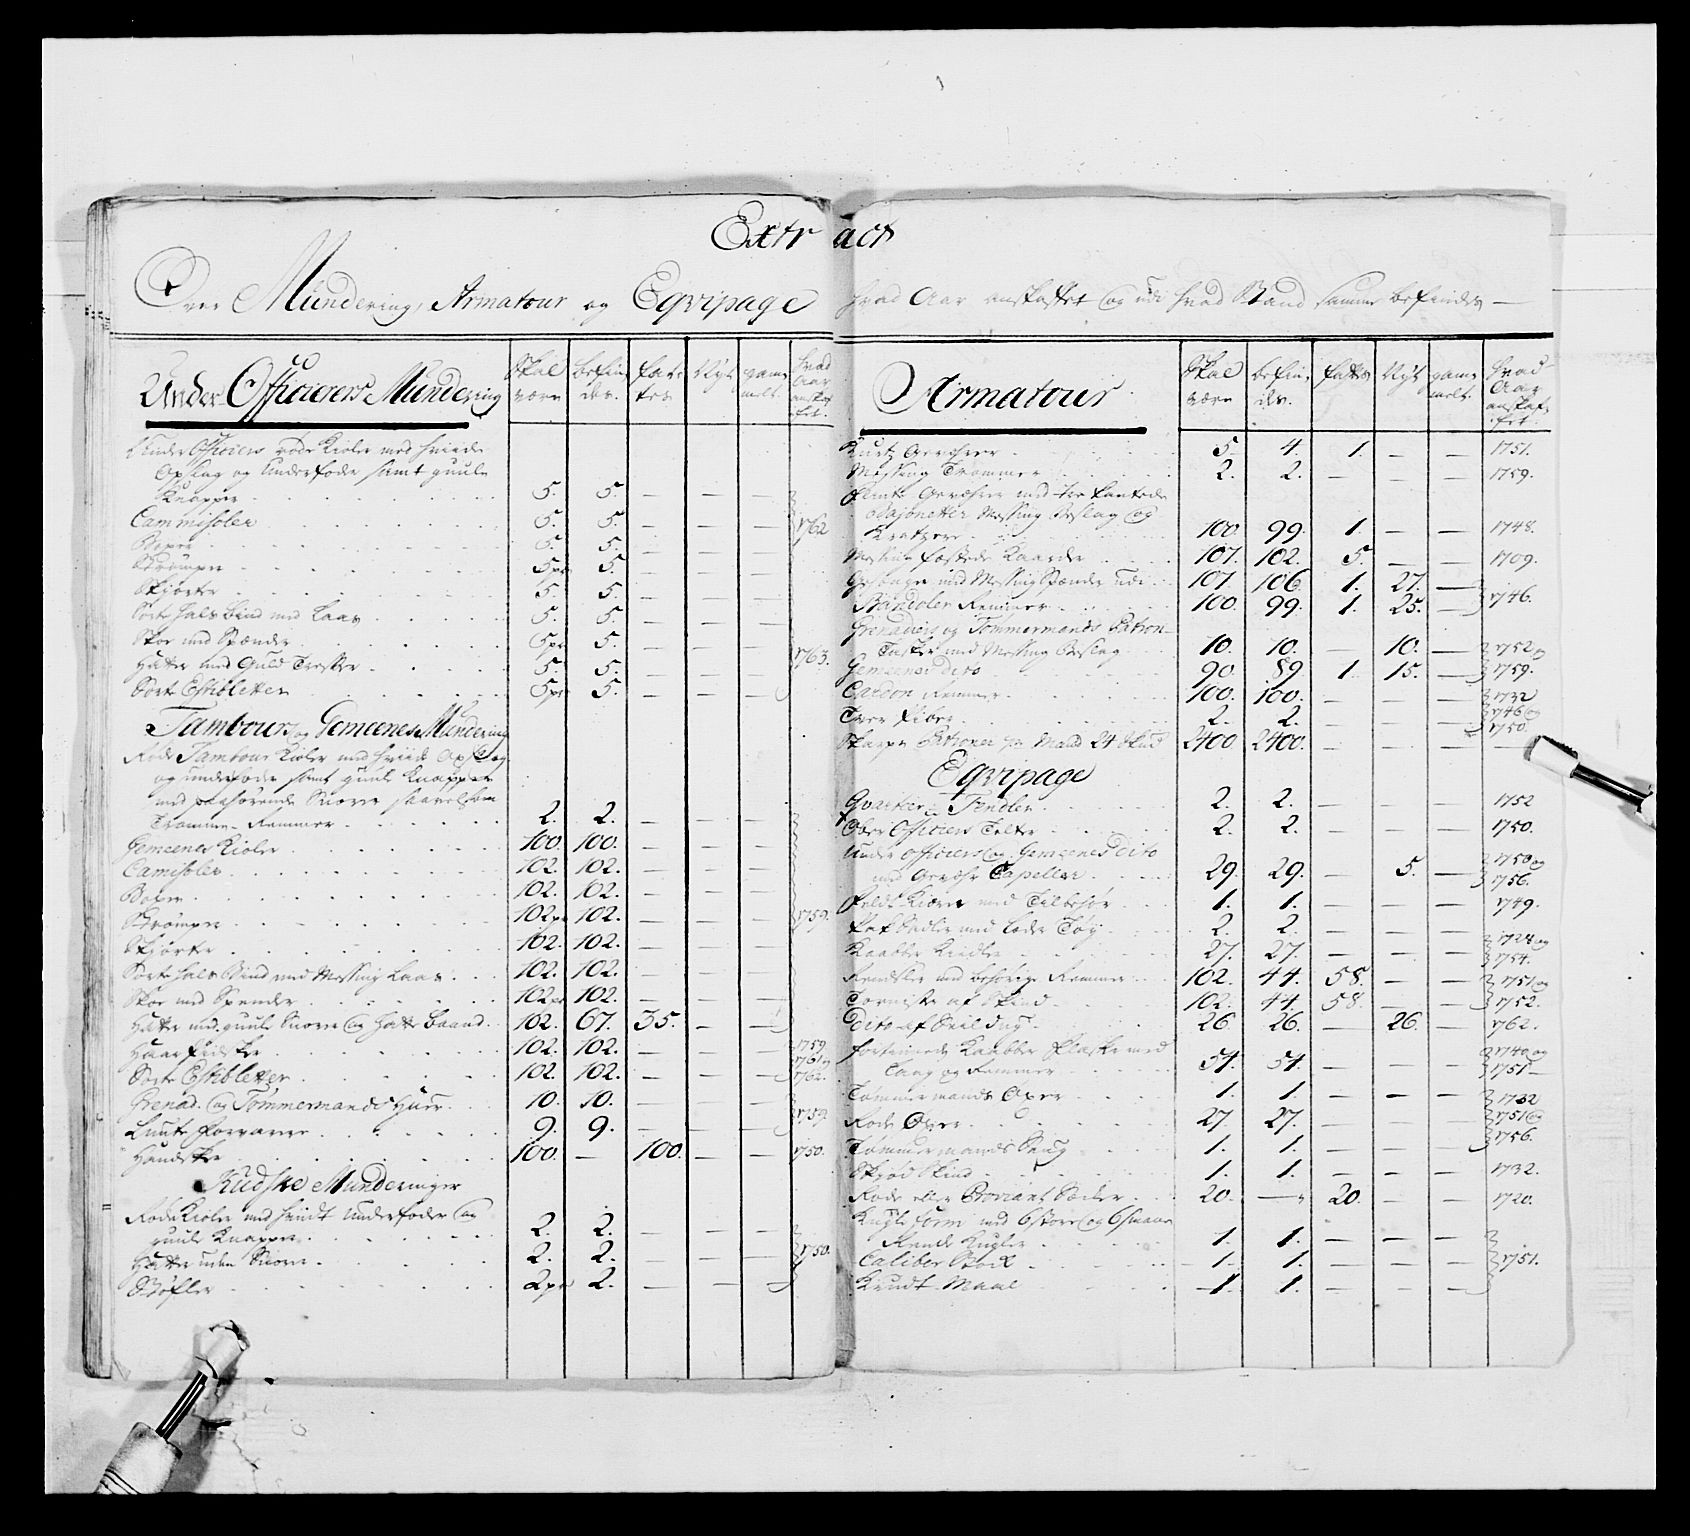 Extract
Over Mundering, Armatour og Eqvipage hvad Aar anskaffet og udi hvad Stand samme befindes —
Under Officierers Mundering | Skal være | befindes | fattes | Nyt | gammelt | hvad Aar anskaffet
Under Officiers røde Kioler med hviide
Opslag og Underfoder samt guule
Knapper . . . 5. 5. — — —
Cammisoler . . . 5. 5. — — — 1762
Boxer . . . 5. 5. — — —
Strømper . . . 5pr 5. — — —
Skjorter . . . 5. 5. — — —
Sorte Hals bind med Laas . . . 5. 5. — — —
Skoe med Spænder . . . 5pr 5. — — — 1763.
Hatte med Guld Tresser . . . 5. 5. — — —
Sorte Estibletter . . . 5pr 5. — — —
Tambours og Gemeenes Mundering
Røde Tambour Kioler med hviide Opslag
og underfoder samt guule Knapper
med paahørende Snorer saavelsom
Tromme-Remmer . . . 2. 2. — — —
Gemeenes Kioler . . . 100. 100. — — —
Camisoler . . . 102. 102. — — —
Boxer . . . 102. 102. — — —
Strømper . . . 102pr 102. — — — 1759.
Skjorter . . . 102. 102. — — —
Sorte Hals Bind med Messing Laas . . . 102. 102. — — —
Skoe med Spender . . . 102pr 102. — — —
Hatte med guule Snorer og Hatte baand . . 102. 67. 35. — —
Haar Pidsker . . . 102. 102. — — — 1759 1761 og
Sorte Estibletter . . . 102. 102. — — — 1762.
Grenad. og Tømmermands Huer . . . 10. 10. — — — 1759
Lunte Forvarere . . . 9. 9. — — —
Handsker . . . 100. — 100. — — 1750.
Kudske Munderinger
Røde Kioler med hviidt Underfoder og
guule Knapper . . . 2. 2. — — —
Hatte uden Snorer . . . 2. 2. — — — 1750.
Støfler . . . 2pr 2. — — —
Armatour | Skal være | befindes | fattes | Nyt | gammelt | hvad Aar anskaffet
Kurtz Geværer . . . 5. 4. 1. — — 1751.
Messing Trommer . . . 2. 2. — — — 1759.
Flinte Geværer med tre kantede
Bajonetter Messing Beslag og
Kratzere . . . 100. 99. 1. — — 1748.
Messing fæstede Kaarder . . . 107. 102. 5. — — 1709.
Gehænger med Messing Spænder udi . . . 107. 106. 1. 27. — 1746.
Bandoler Remmer . . . 100. 99. 1. 25. —
Grenadiers og Tømmermands Patron-
Tasker med Messing Beslag . . . 10. 10. — 10. — 1752 og
Gemeenes dito . . . 90. 89. 1. 15. — 1759.
Cardon Remmer . . . 100. 100. — — — 1732
Tver Piber . . . 2. 2. — — — 1746 og 1750.
Skarpe Patroner pr Mand 24 Skud 2400 2400. — — — —
Eqvipage
Qvarteer Fendler . . . 2. 2. — — — 1752
Ober Officiers Telter . . . 2. 2. — — — 1750.
Under officiers og Gemeenes dito
med Gevæhr Capeller . . . 29. 29. — 5. — 1750 og 1756.
Feldt Kiærer med Tilbehør . . . 1. 1. — — — 1749.
Pak Sadler med Læder Tøy . . . 2. 2. — — —
Kaabber Kiedler . . . 27. 27. — — — 1728 og 1754.
Rendsler med behørige Remmer . . . 102. 44. 58. — — 1751 og
Tornister af Skind . . . 102. 44. 58. — — 1752.
Dito af Seildug . . . 26. 26. — 26. — 1762.
Fortinnede Kaabber Flasker med
Laag og Remmer . . . 54. 54. — — — 1740 og 1751 —
Tømmermands Øxer . . . 1. 1. — — — 1732
Røde Øxer . . . 27. 27. — — — 1751 og
Tømmermands Saug . . . 1. 1. — — — 1756.
Skjød Skind . . . 1. 1. — — — 1732.
Røde eller Proviant Sæcker . . . 20. — 20. — — 1720.
Kugle form med 6 store og 6 smaae
Rende Kugler . . . 1. 1. — — —
Caliber Stock . . . 1. 1. — — — 1751.
Krudt Maal . . . 1. 1. — — —